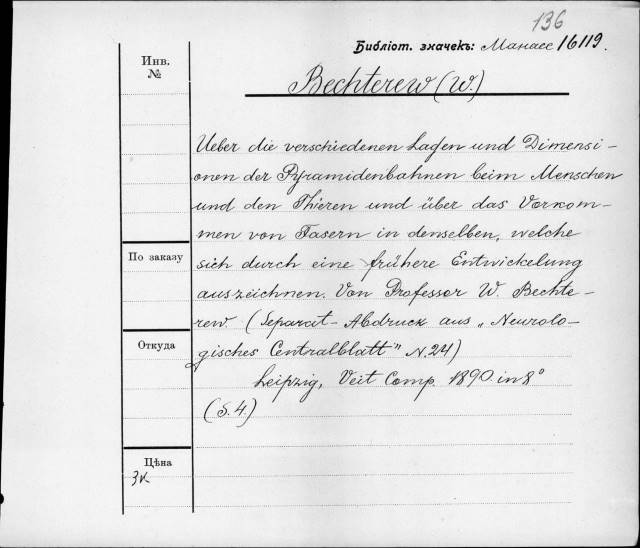 136
Библіот. значекъ: Манасс 16119.
Инв.
№
Bechterew (W.)
Ueber die verschiedenen Lagen und Dimensi-
onen der Pyramidenbahnen beim Menschen
und den Thieren und über das Vorkom-
men von Fasern in denselben, welche
По заказу
sich durch eine frühere Entwickelung
auszeichnen. Von Professor W. Bechte-
rew. (Separat-Abdruck aus „Neurolo-
Откуда
gisches Centralblatt" N. 24)
Leipzig, Veit Comp. 1890. in 8°
(S. 4.)
Цѣна
3к